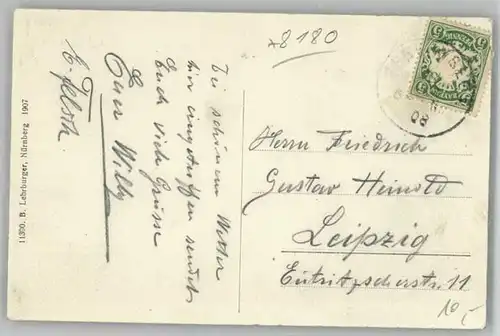 x8180
Bei schönem Wetter
hier eingetroffen sendet
Euch viele Grüsse
Euer Willy
08
Herrn Friedrich
Gustav Heinold
Leipzig
Eutritzscherstr. 11
10,-
11300. B. Lehrburger, Nürnberg 1907